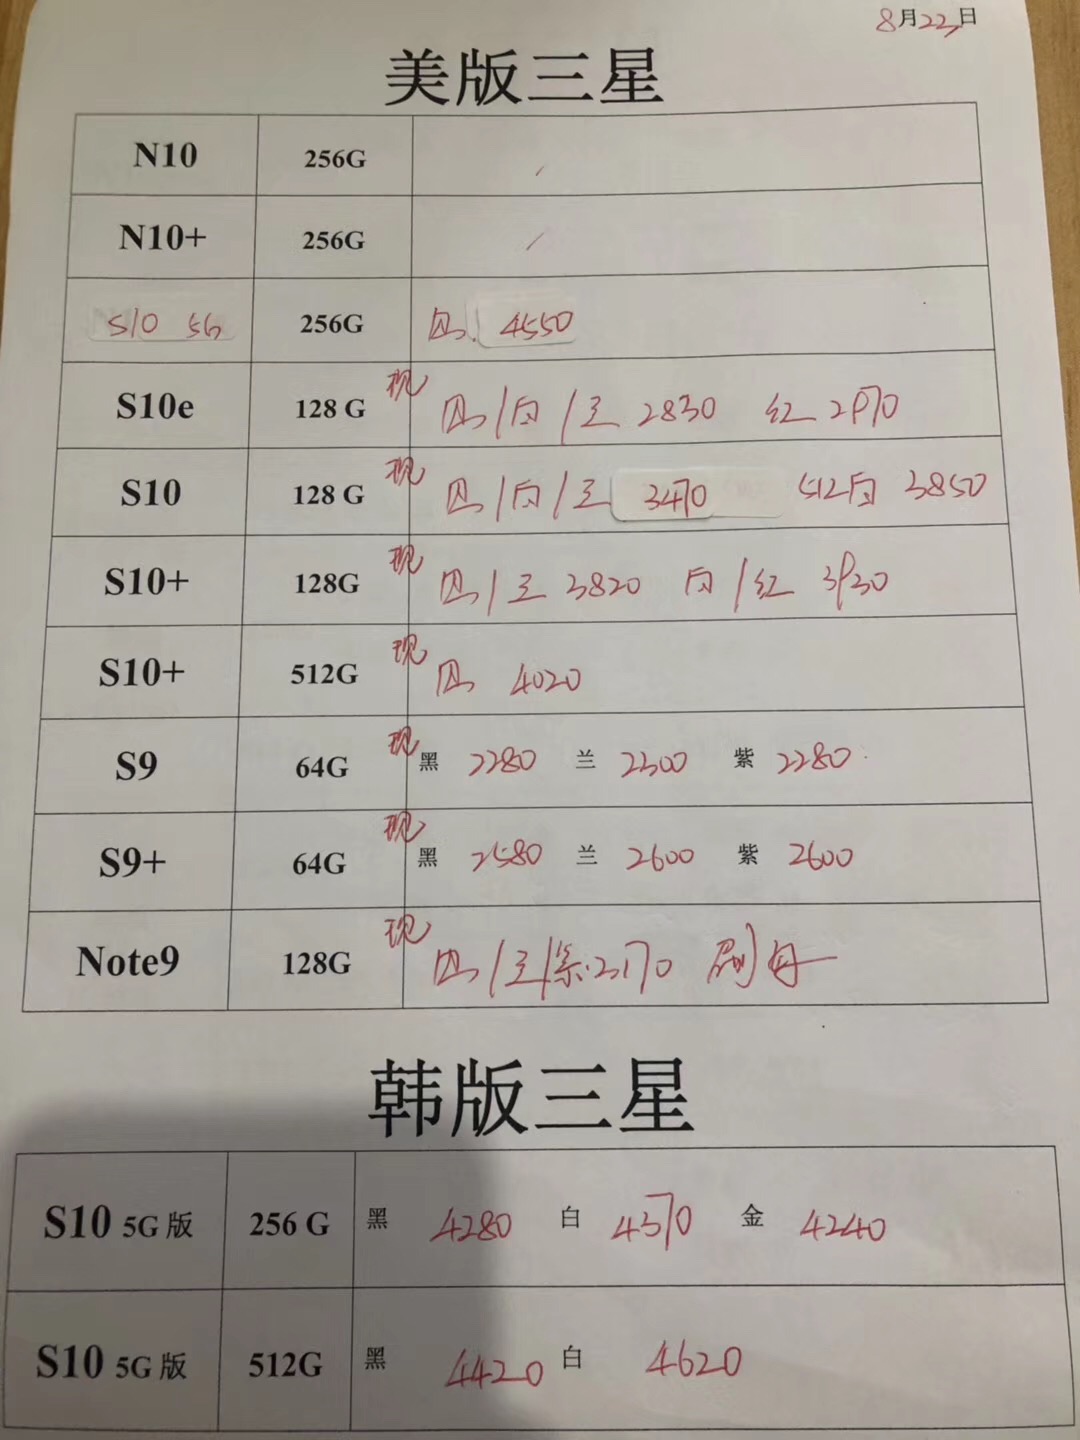 8月22日
美版三星
N10 256G /
N10+ 256G /
S10 5G 256G 黑. 4550
S10e 128 G 现 黑/白/兰 2830 红 2970
S10 128 G 现 黑/白/兰 3470 512白 3850
S10+ 128G 现 黑/兰 3820 白/红 3930
S10+ 512G 现 黑 4020
S9 64G 现 黑 2280 兰 2300 紫 2280
S9+ 64G 现 黑 2580 兰 2600 紫 2600
Note9 128G 现 黑/兰/紫.3170
韩版三星
S10 5G 版 256 G 黑 4280 白 4370 金 4240
S10 5G 版 512G 黑 4420 白 4620